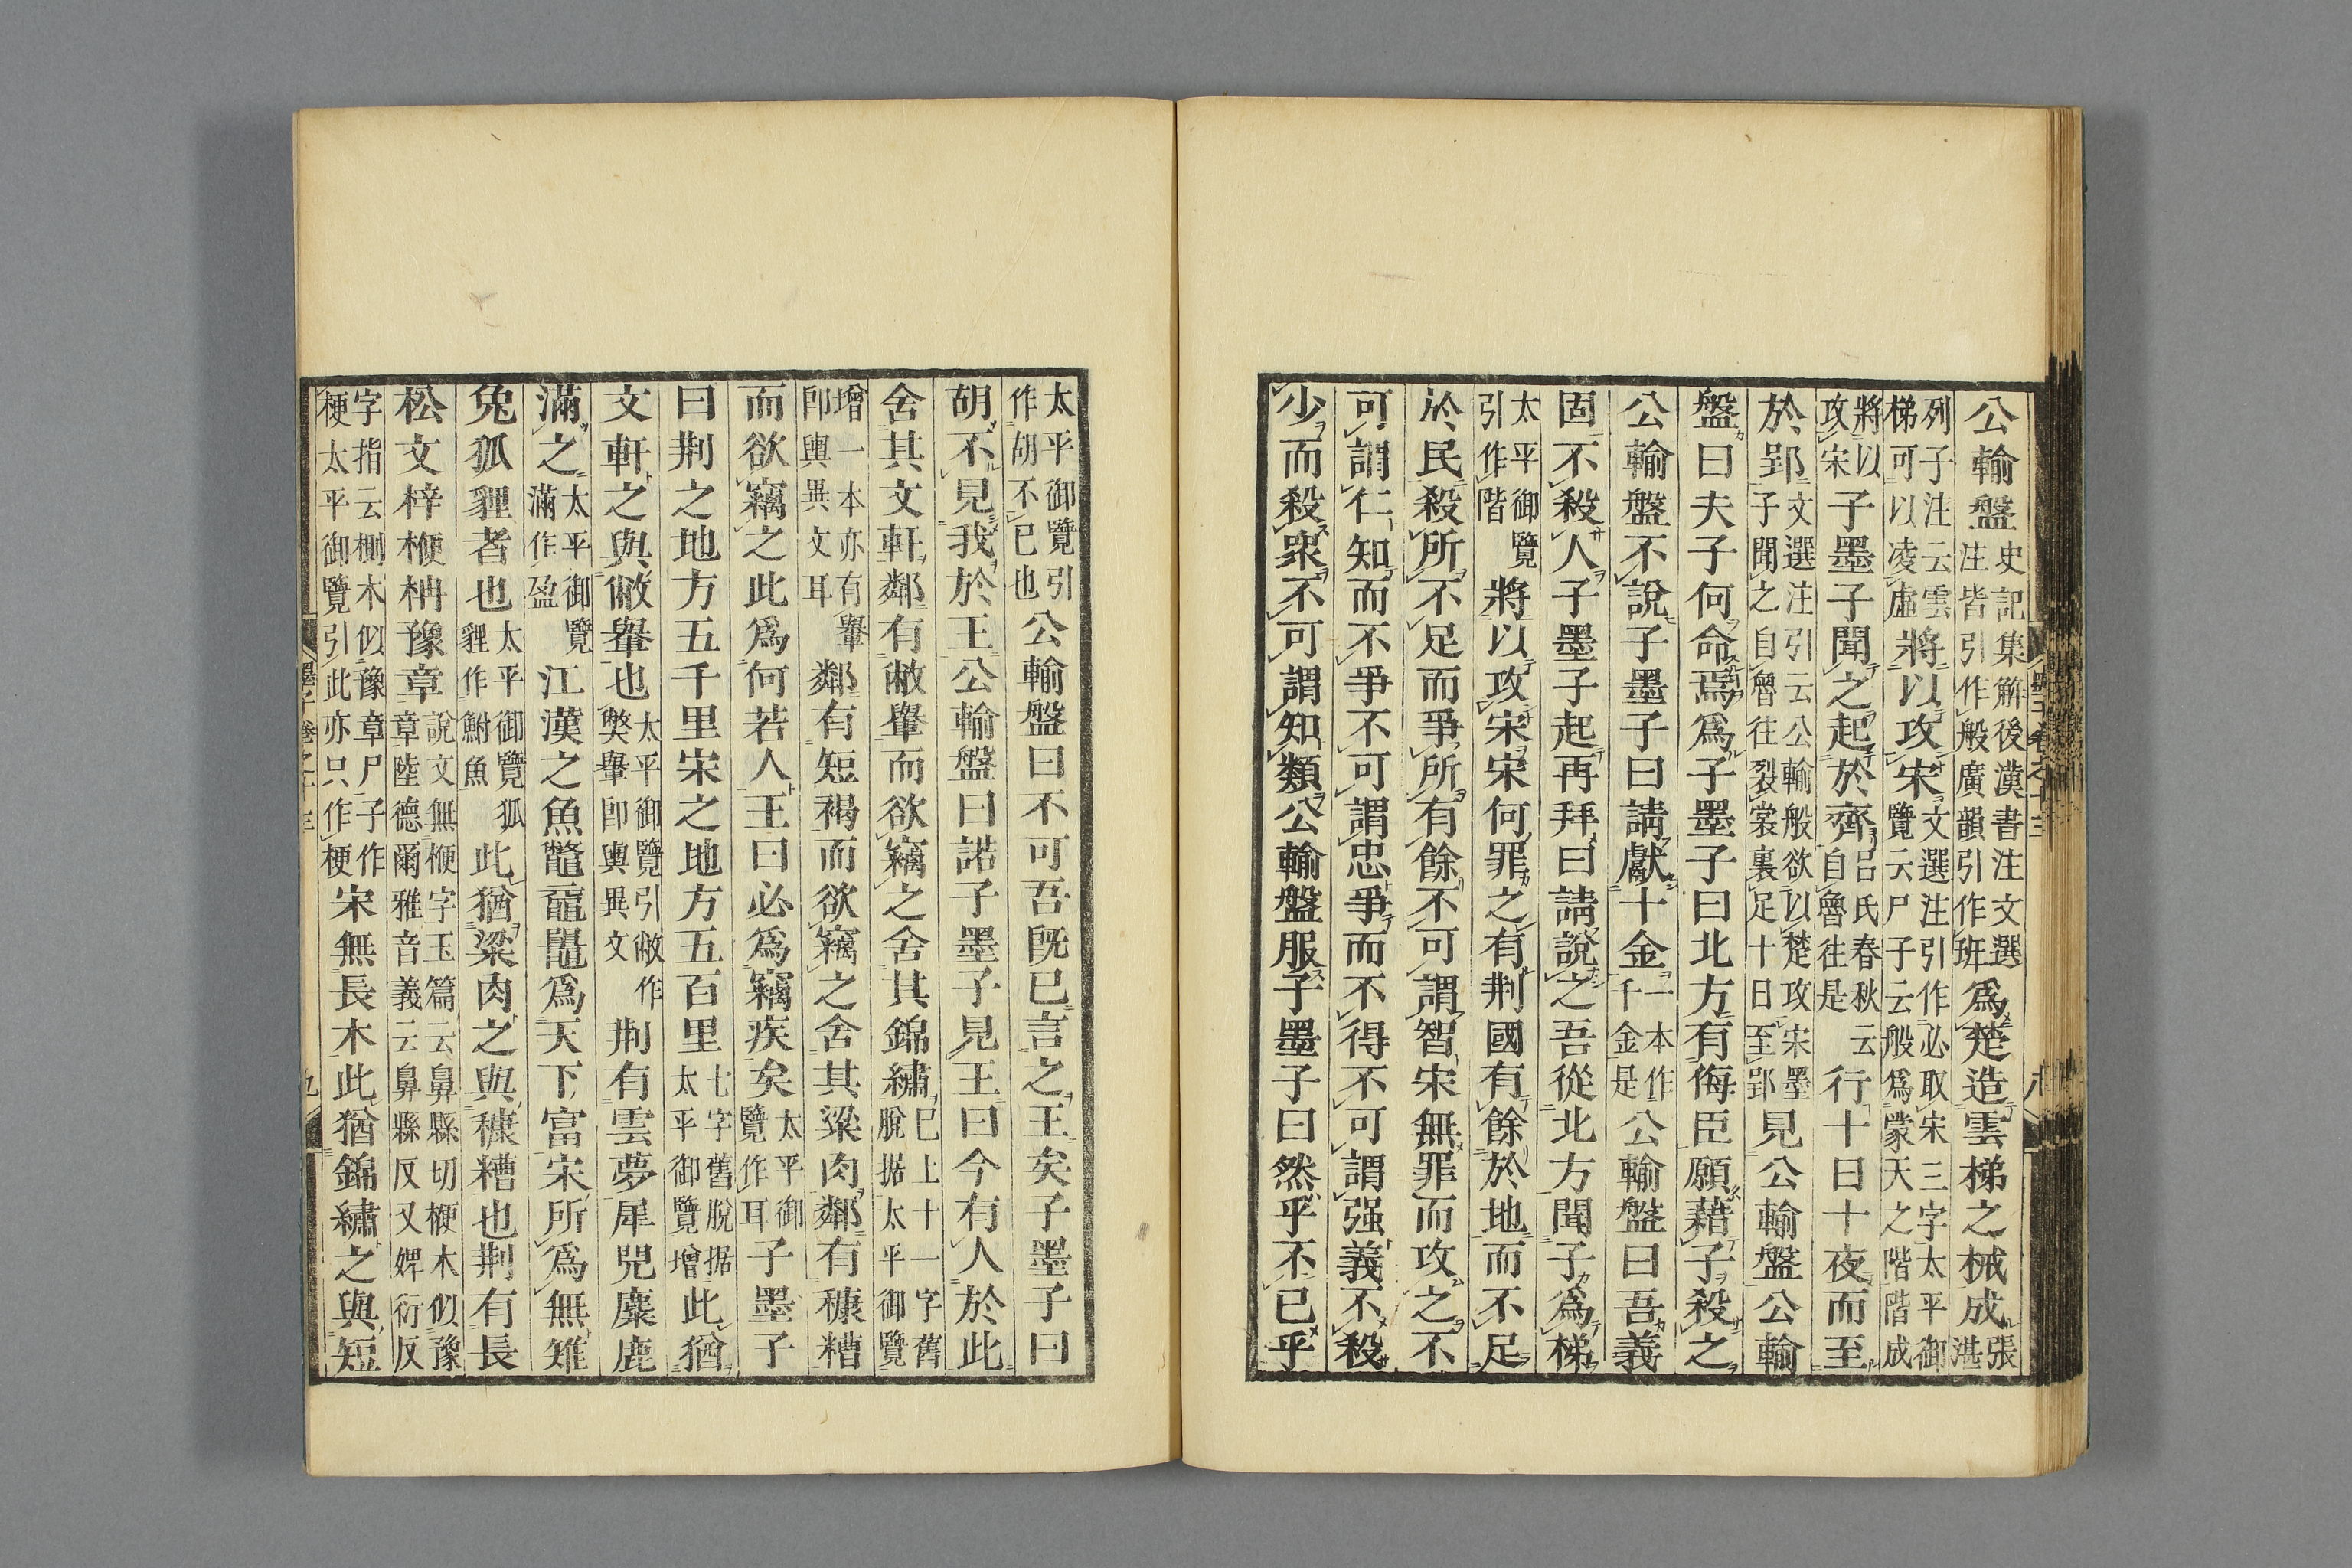 公輸盤史記集解後漢書注文選注皆引作般廣韻引作班爲楚造雲梯之械成張湛
列子注云雲梯可以凌虛將以攻宋文選注引作必取宋三字太平御覽云尸子云般爲蒙天之階階成
將以攻宋子墨子聞之起於齊呂氏春秋云自魯往是行十日十夜而至
於郢文選注引云公輸般欲以楚攻宋墨子聞之自魯往裂裳裹足十日至郢見公輸盤公輸
盤曰夫子何命焉爲子墨子曰北方有侮臣願藉子殺之
公輸盤不說子墨子曰請獻十金一本作千金是公輸盤曰吾義
固不殺人子墨子起再拜曰請說之吾從北方聞子爲梯
太平御覽引作階將以攻宋宋何罪之有荆國有餘於地而不足
於民殺所不足而爭所有餘不可謂智宋無罪而攻之不
可謂仁知而不爭不可謂忠爭而不得不可謂强義不殺
少而殺衆不可謂知類公輸盤服子墨子曰然乎不已乎
太平御覽引作胡不已也公輸盤曰不可吾旣已言之王矣子墨子曰
胡不見我於王公輸盤曰諾子墨子見王曰今有人於此
舍其文軒鄰有敝轝而欲竊之舍其錦繡已上十一字舊脫据太平御覽
增一本亦有轝卽輿異文耳鄰有短褐而欲竊之舍其粱肉鄰有穅糟
而欲竊之此爲何若人王曰必爲竊疾矣太平御覽作耳子墨子
曰荆之地方五千里宋之地方五百里七字舊脫据太平御覽增此猶
文軒之與敝轝也太平御覽引敝作獘轝卽輿異文荆有雲夢犀兕麋鹿
滿之太平御覽滿作盈江漢之魚鼈黿鼉爲天下富宋所爲無雉
兔狐貍者也太平御覽狐貍作鮒魚此猶粱肉之與穅糟也荆有長
松文梓楩枏豫章說文無楩字玉篇云鼻縣切楩木似豫章陸德爾雅音義云鼻縣反又婢衍反
字指云楩木似豫章尸子作梗太平御覽引此亦只作梗宋無長木此猶錦繡之與短
墨子卷之十三
八
墨子卷之十三
九